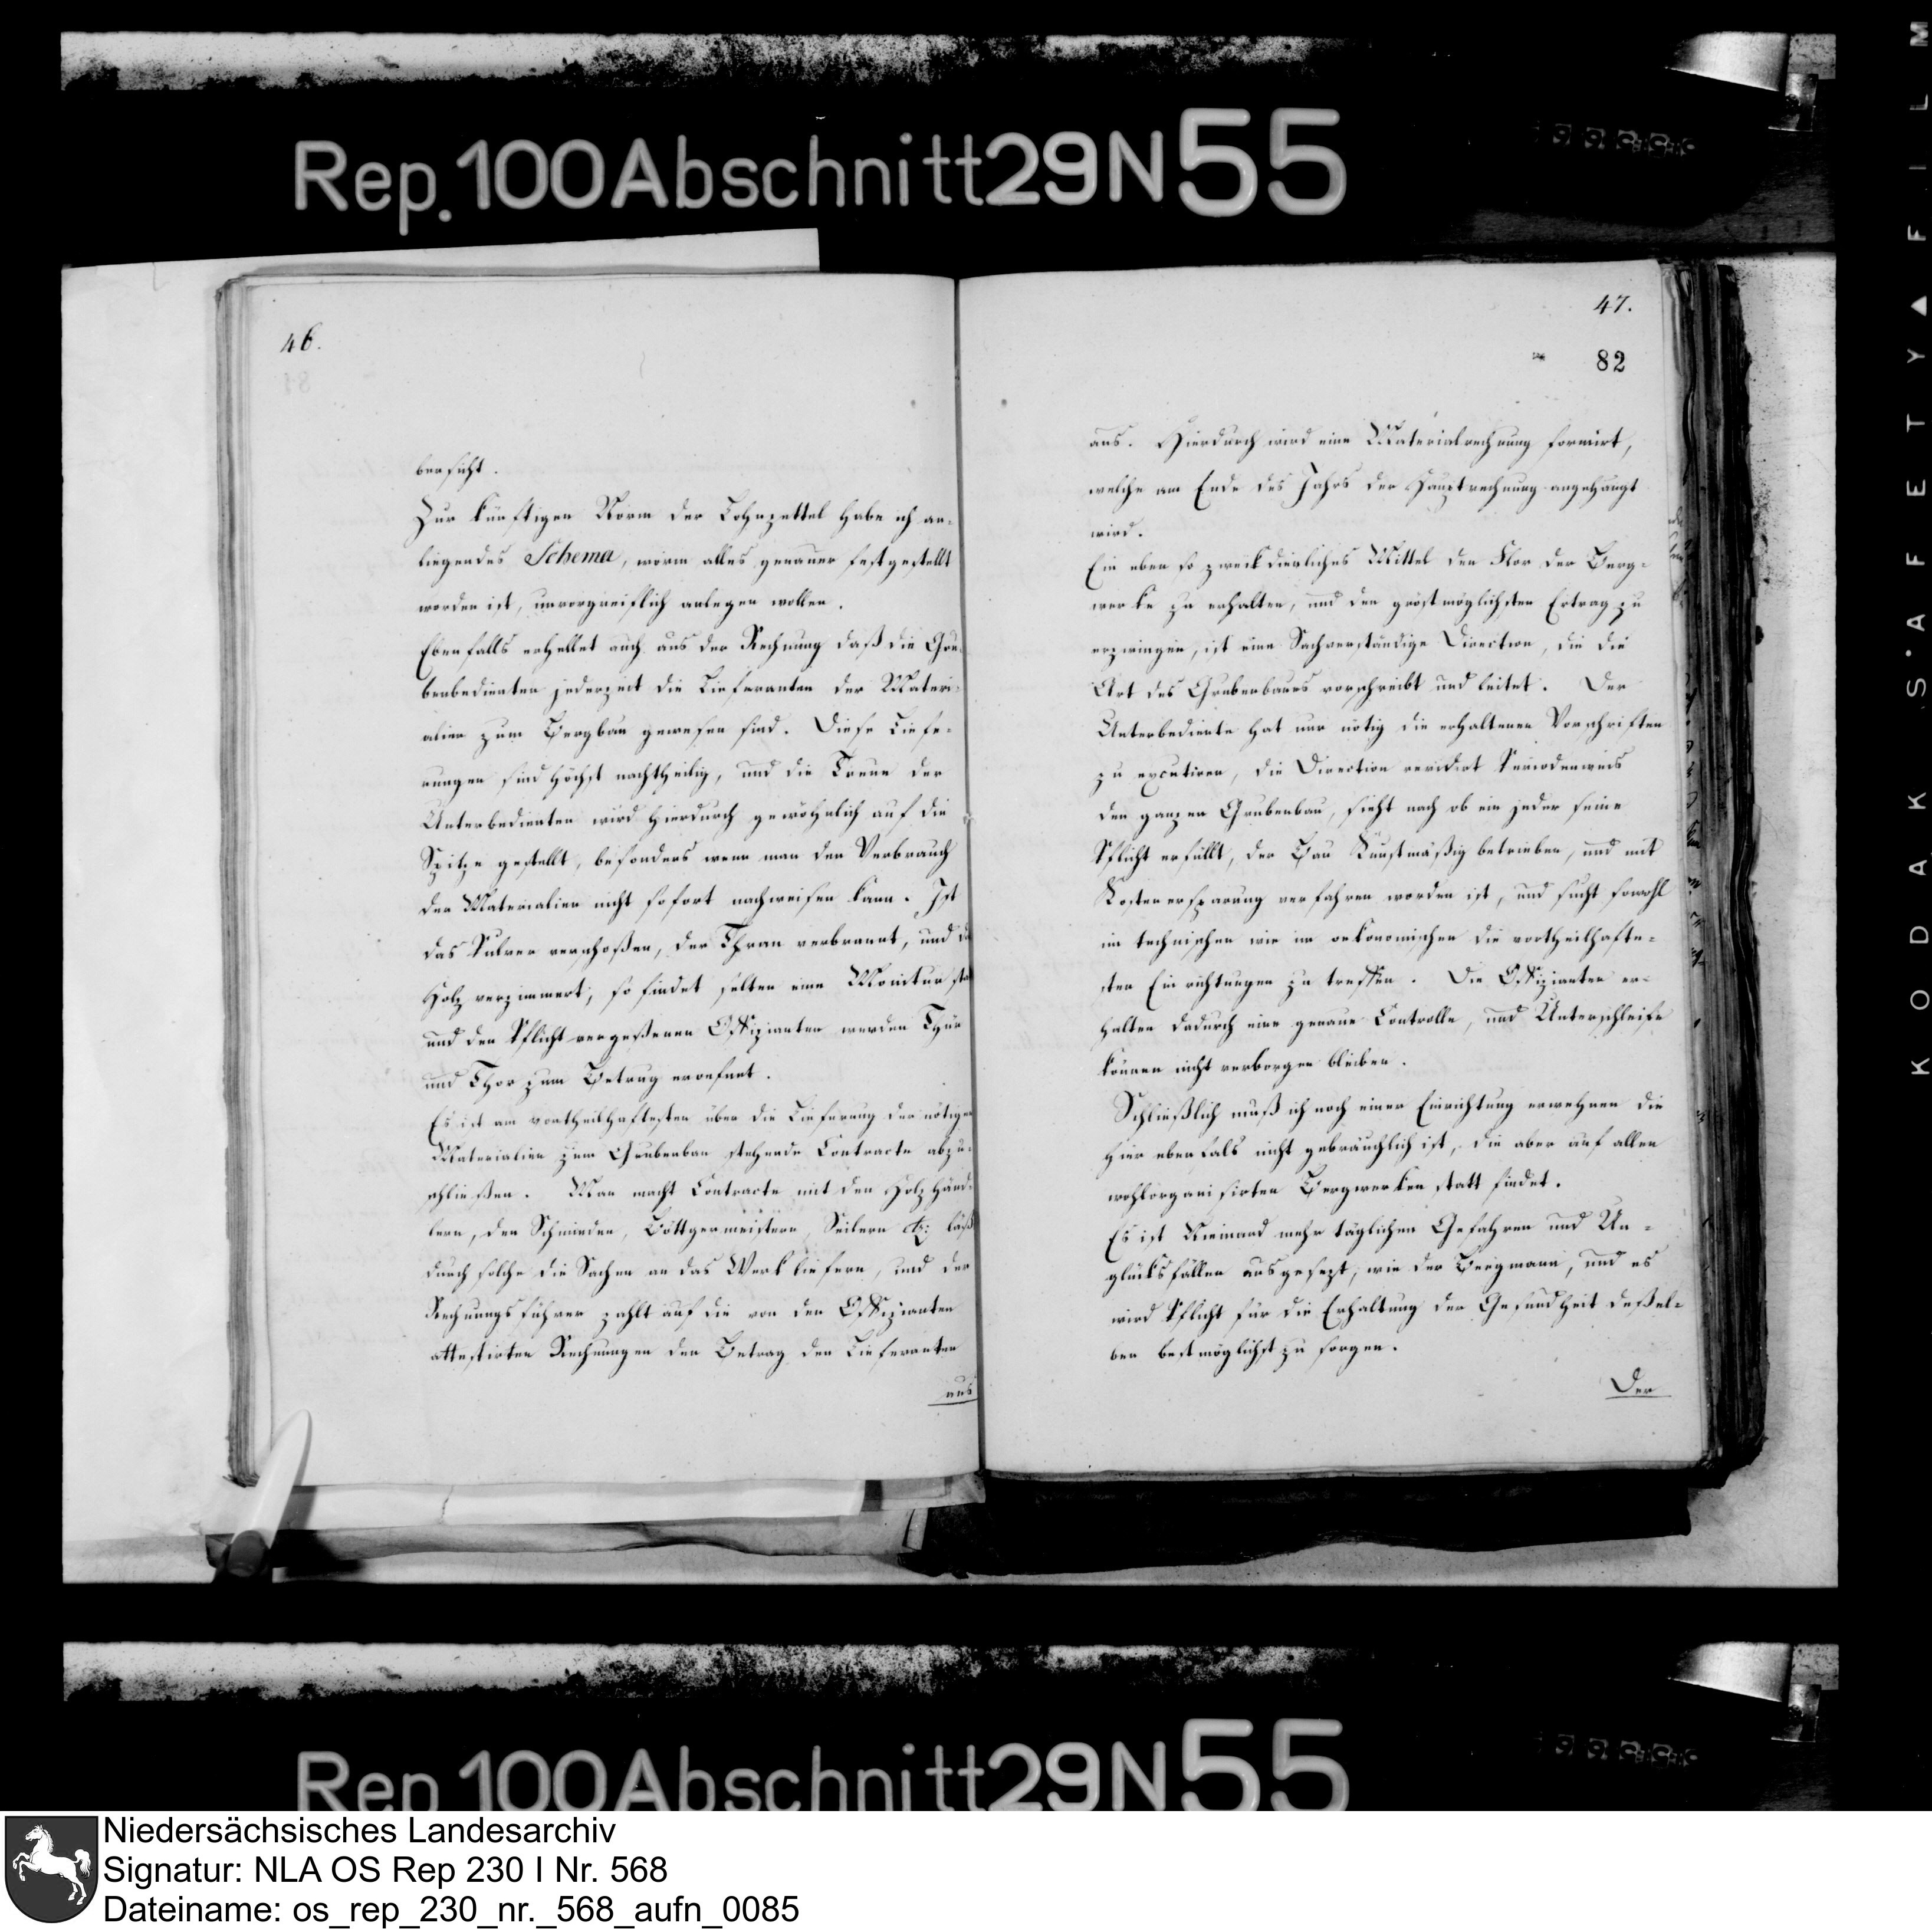 Rep.100Abschnitt29N55
46.
bersicht.
Zur künftigen Norm der Lohnzettel habe ich an-
liegendes Schema, worin alles genauer festgestellt
worden ist, unvorgreiflich anlegen wollen.
Ebenfalls erhellet auch aus der Rechnung daß die Gru-
benbedienten jederzeit die Lieferanten der Materi-
alien zum Bergbau gewesen sind. Diese Liefe-
rungen sind höchst nachtheilig, und die Treue der
Unterbedienten wird hierdurch gewöhnlich auf die
Spitze gestellt, besonders wenn man den Verbrauch
der Materialien nicht sofort nachweisen kann. Ist
das Pulver verschoßen, der Thran verbrannt, und da
Holz verzimmert, so findet selten eine Monitur sta
und den Pflicht vergeßenen Offizianten werden Thür
und Thor zum Betrug eroefnet.
Es ist am vortheilhaftesten über die Lieferung der nötigen
Materialien zum Grubenbau stehende Contracte abzu-
schließen. Man macht Contracte mit den Holzhänd-
lern, den Schmieden, Böttgermeistern, Seilern etc: läßt
durch solche die Sachen an das Werk liefern, und der
Rechnungsführer zahlt auf die von den Offizianten
attestirten Rechnungen den Betrag den Lieferanten
aus
47.
82
aus. Hierdurch wird eine Materialrechnung formirt,
welche am Ende des Jahrs der Hauptrechnung angehängt
wird.
Ein eben so zweckdienliches Mittel den Flor der Berg-
werke zu erhalten, und den gröstmöglichsten Ertrag zu
erzwingen, ist eine Sachverständige Direction, die die
Art des Grubenbaues vorschreibt und leitet. Der
Unterbediente hat nur nötig die erhaltenen Vorschriften
zu excutiren, die Direction revidirt Periodenweis
den ganzen Grubenbau, sieht nach ob ein jeder seine
Pflicht erfüllt, der Bau Kunstmäßig betrieben, und mit
Kostenersparung verfahren worden ist, und sucht sowohl
im technischen wie im oekonomischen die vortheilhafte-
sten Einrichtungen zu treffen. Die Offizianten er-
halten dadurch eine genaue Controlle, und Unterschleife
können nicht verborgen bleiben.
Schließlich muß ich noch einer Einrichtung erwehnen die
hier ebenfals nicht gebräuchlich ist, die aber auf allen
wohlorganisirten Bergwerken statt findet.
Es ist Niemand mehr täglichen Gefahren und Un-
glücksfällen ausgesezt, wie der Bergmann, und es
wird Pflicht für die Erhaltung der Gesundheit deßel-
ben bestmöglichst zu sorgen.
Der
KODAK S'AFETY▲FILM
Rep 100Abschnitt29N55
Niedersächsisches Landesarchiv
Signatur: NLA OS Rep 230 I Nr. 568
Dateiname: os_rep_230_nr._568_aufn_0085